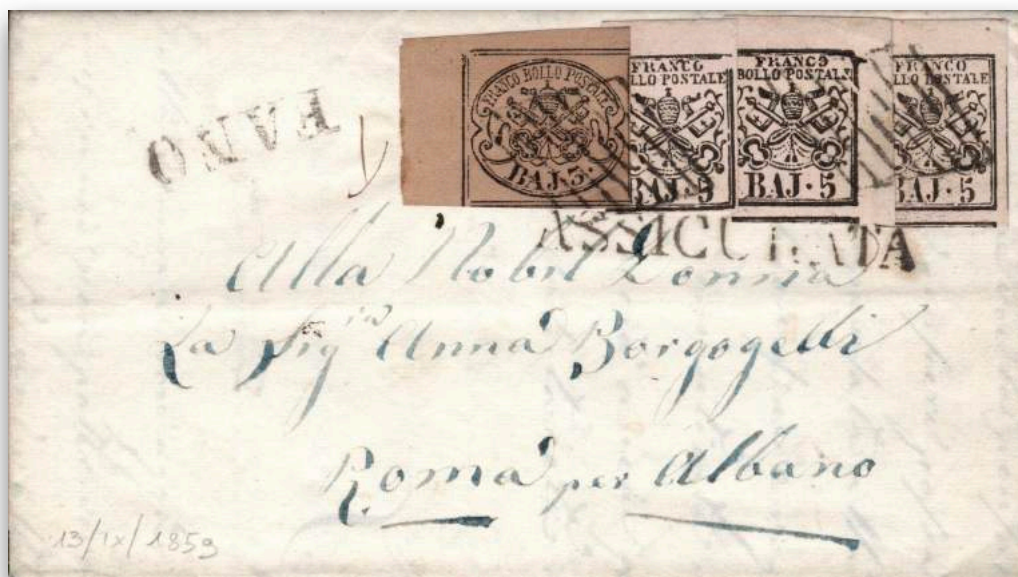 FANO
FRANCO BOLLO POSTALE
BAJ·3·
FRANCO
BOLLO POSTALE
BAJ·5
FRANCO
BOLLO POSTALE
BAJ·5
FRANCO
BOLLO POSTALE
BAJ·5
ASSICURATA
Alla Nobil Donna
La Sigra Anna Borgogelli
Roma per Albano
13/IX/1859